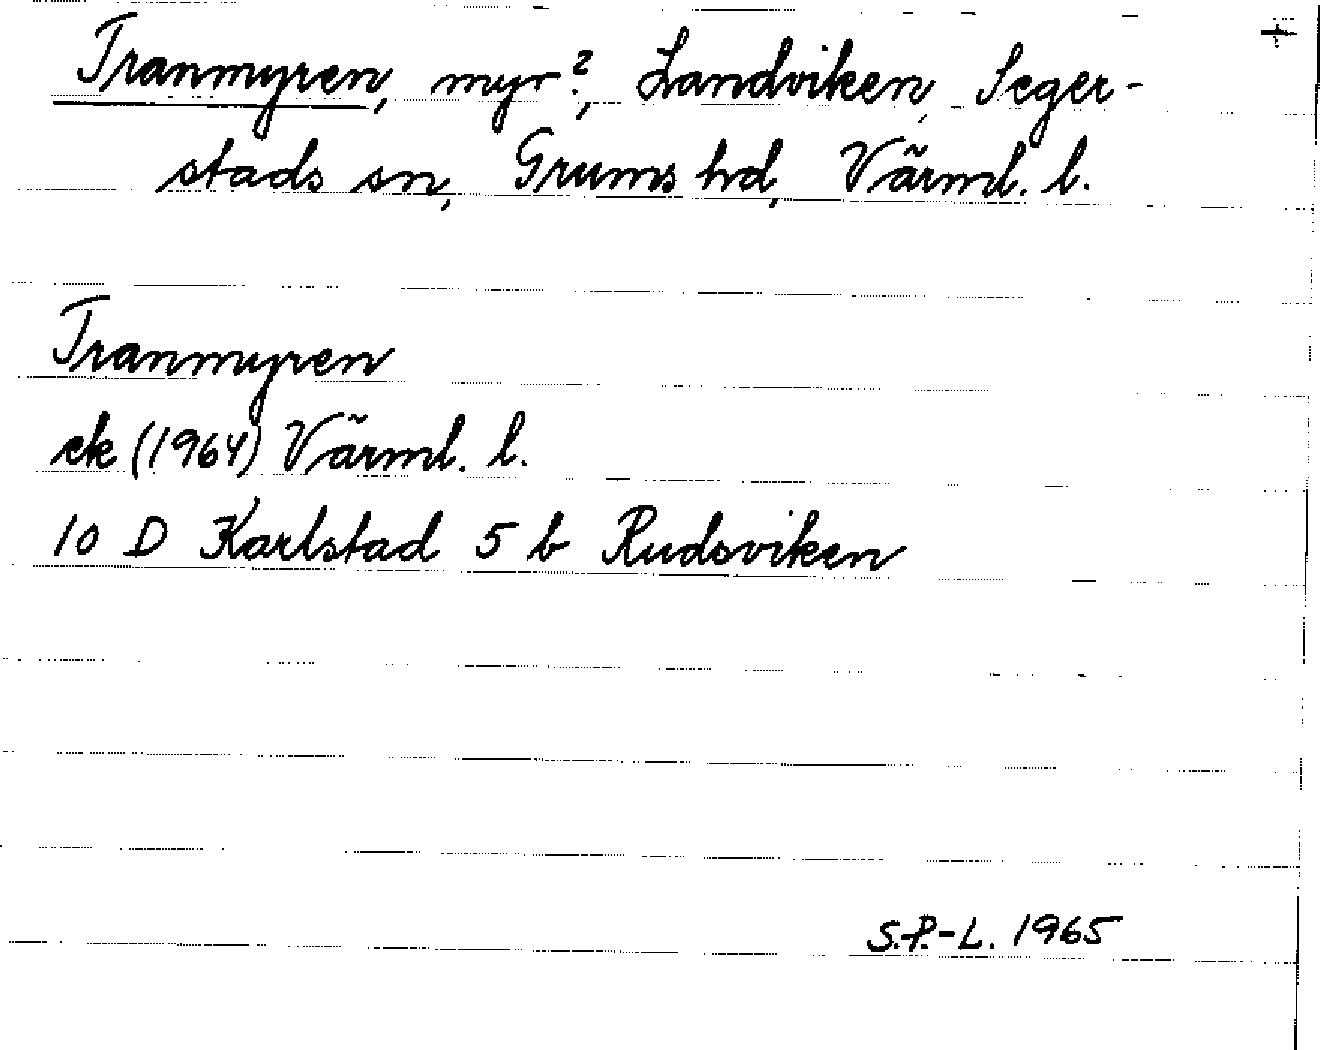 Tranmyren, myr?, Landviken, Seger-
stads sn, Grums hd, Värml. l.
Tranmyren
ek (1964) Värml. l.
10 D Karlstad 5 b Rudsviken
S.P.-L. 1965